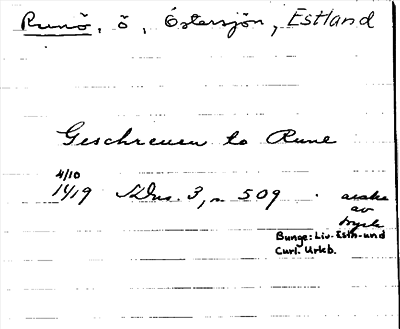 Runö, ö, Östersjön, Estland
Geschreuen to Rune
4/10
1419 SDns. 3, n 509 . avskr.
av
tryck
Bunge: Liv- Esth- und
Curl. Urkb.